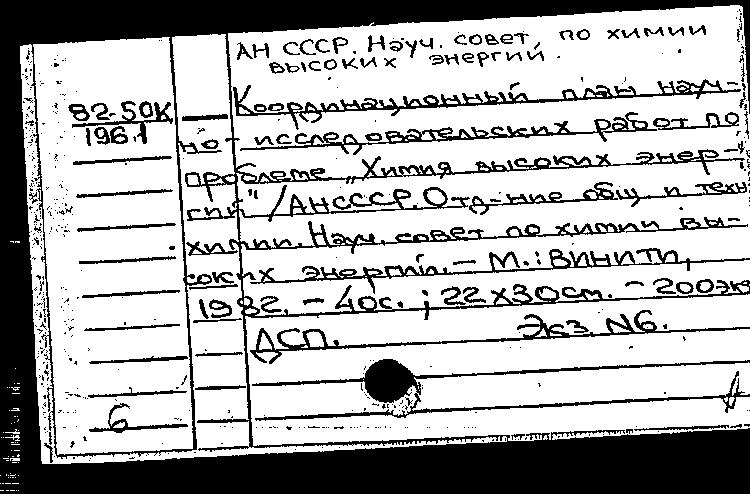 АН СССР. Науч. совет, по химии
высоких энергий.
82-50К
1961
Координационный план науч-
но-исследовательских работ по
проблеме „Химия высоких энер-
гий" / АНСССР. Отд-ние общ. и техн
химии. Науч. совет по химии вы-
соких энергий. – М.: ВИНИТИ,
1982. – 40с. ; 22х30см. – 200эк
ДСП. Экз. N6.
6